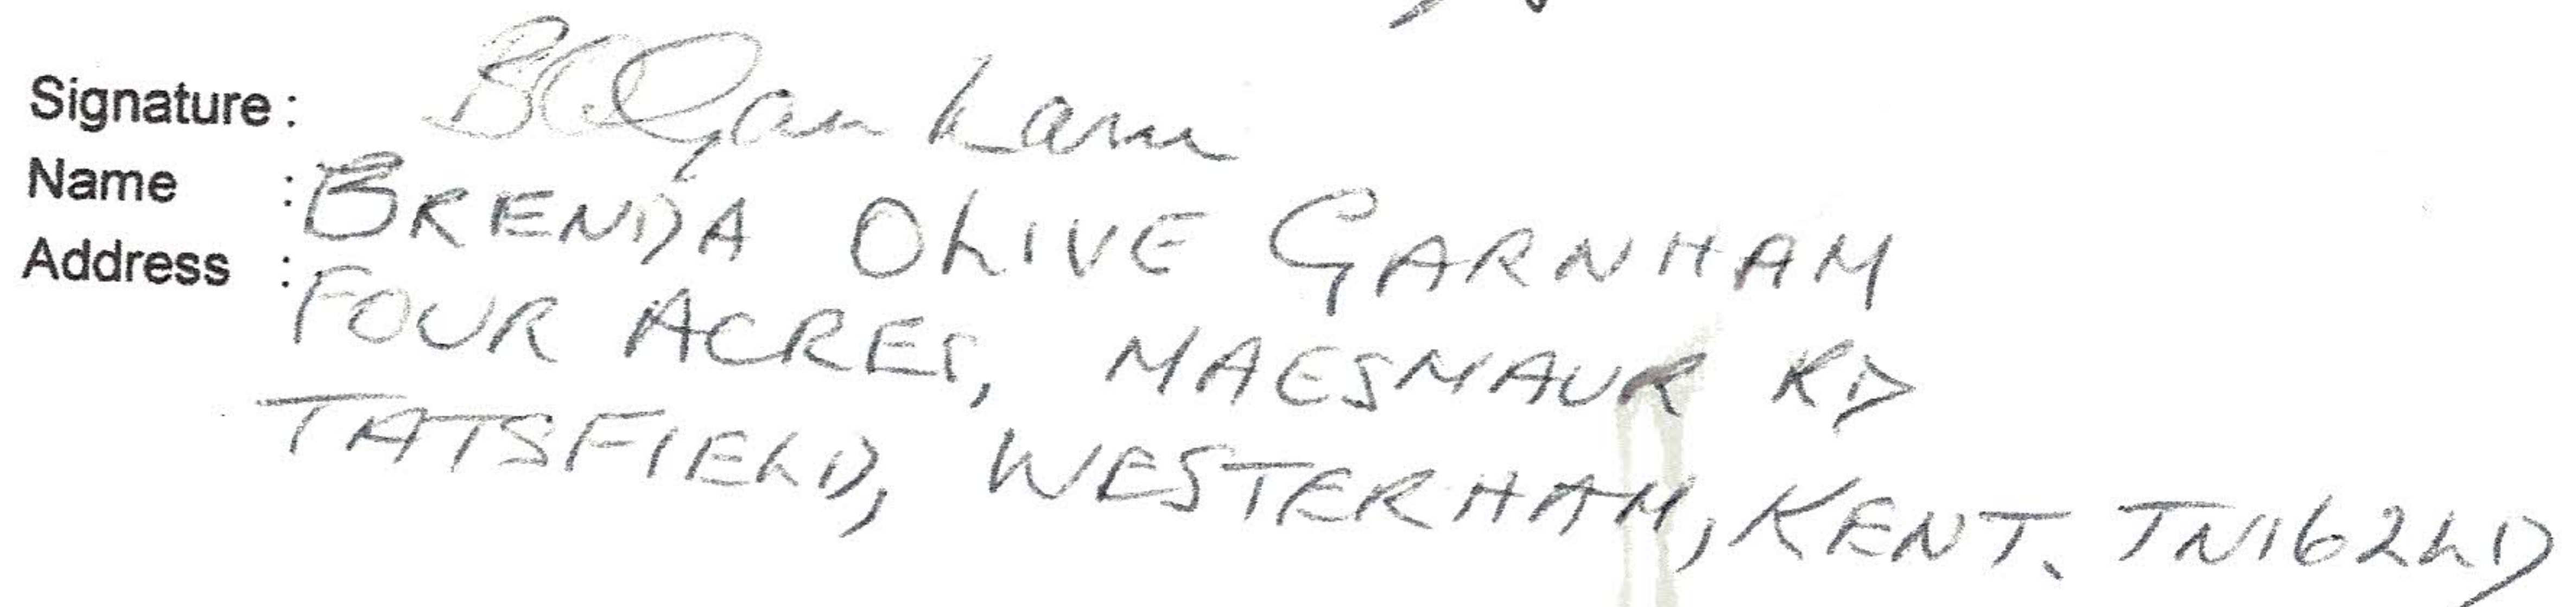 Signature : BOGarnham
Name : BRENDA OLIVE GARNHAM
Address : FOUR ACRES, MAESMAUR RD
TATSFIELD, WESTERHAM, KENT. TN162LD